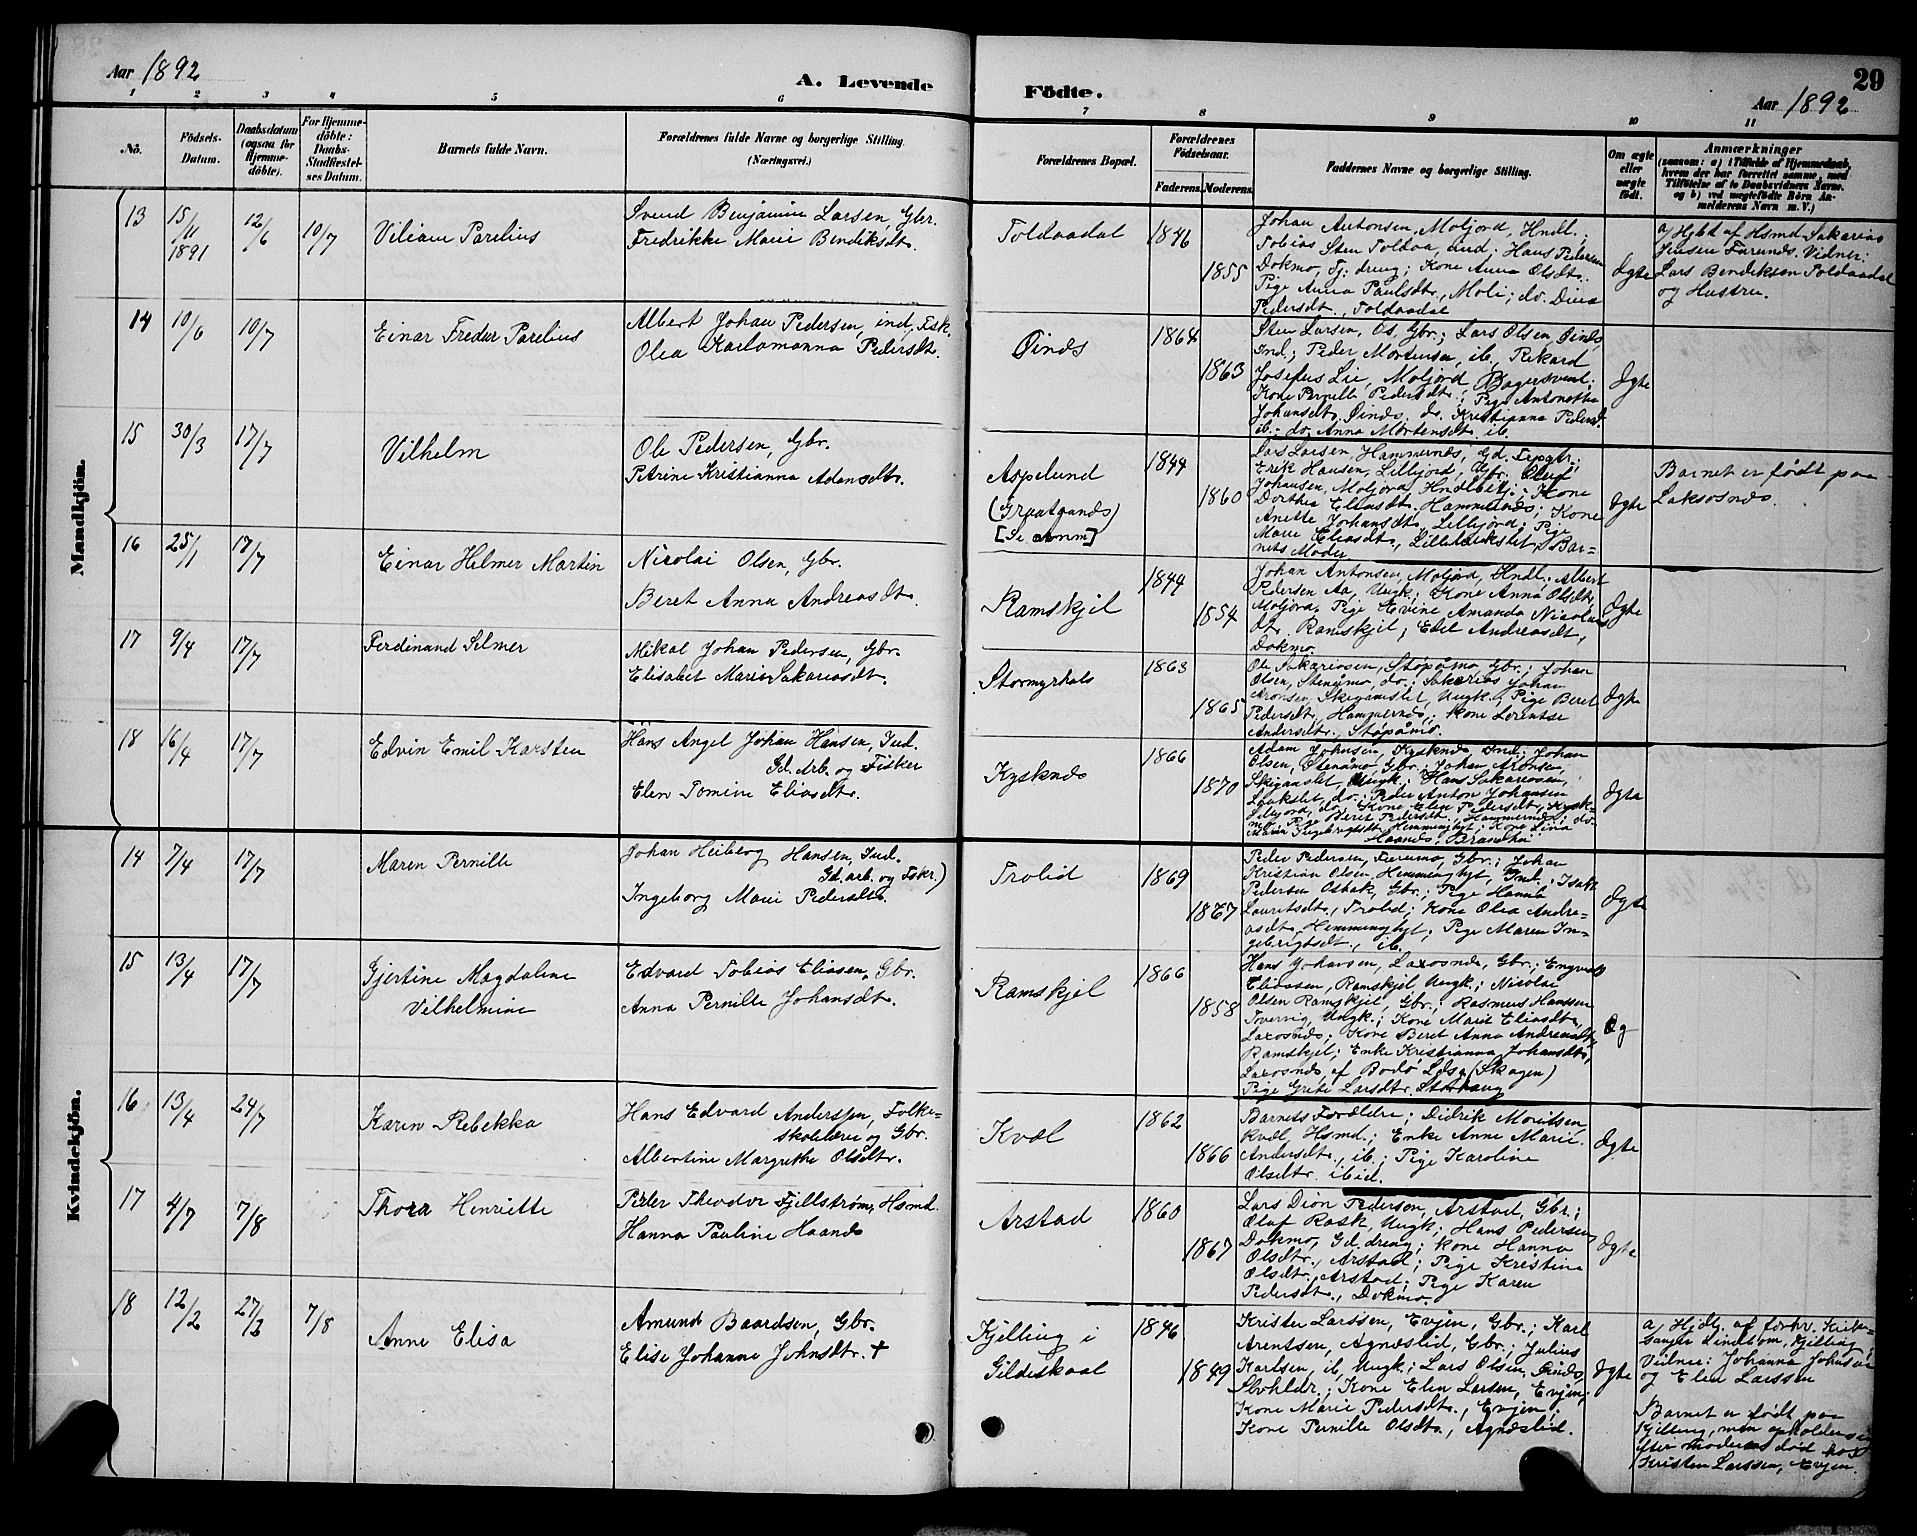 Aar 1892
A. Levende
Födte.
29
Aar 1892
1 2 3 4 5 6 7 8 9 10 11
No.
Födsels-
Datum.
Daabsdatum
(ogsaa for
Hjemme-
döbte).
For Hjemme-
döbte:
Daabs-
Stadfæstel-
ses Datum.
Barnets fulde Navn.
Forældrenes fulde Navne og borgerlige Stilling.
(Næringsvei.)
Forældrenes Bopæl.
Forældrenes
Födselsaar.
Faderens. Moderens.
Faddernes Navne og borgerlige Stilling.
Om ægte
eller
uægte
födt.
Anmærkninger
(saasom: a) i Tilfælde af Hjemmedaab,
hvem der har forrettet samme, med
Tilföielse af to Daabsvidners Navne,
og b) ved uægtefödte Börn An-
melderens Navn m. V.)
Mandkjön.
13
15/11
1891
12/6
10/7
Viliam Parelius
Svend Benjamin Larsen, Gbr.
Fredrikke Marie Bendiksdt.
Toldaadal
1846
1855
Johan Antonsen, Moljord, Hndl.;
Tobias Sten Toldaa, ind; Hans Pedersen
Dokmo, Tj. dreng; Kone Anna Olsdt.
Pige Anna Paulsdtr., Moli; do. Dina
Pedersdt., Toldaadal
Ægte
a, Hjbd af Hsmd Sakarias
Jensen Vidner:
Lars Bendiksen Toldaadal
og Hustru.
14
10/6
10/7
Einar Fredur Parelius
Albert Johan Pedersen, ind, Fisk.
Olea Karlamanna Pedersdt.
Øinds
1864
1863
Sten Larsen, Os, Gbr.; Lars Olsen, Øinds,
Ind.; Peder Mortensen, ib., Rekard
Josefus Lie, Moljord, Bagersvend;
Kone Pernille Pedersdt.; Pige Antonette
Johansdt. Øinds. do. Kristianna Pedersd.
ib.; do. Anna Mortensdt. ib.
Ægte
15
30/3
17/7
Vilhelm
Ole Pedersen, Gbr.
Petrine Kristianna Adamsdtr.
Aspelund
(Graataands)
[Se Anm]
1844
1860
Lars Larsen Hammernds, Gd.
Erik Hansen, Lillejord, Gbr. Oluf
Johansen, Moljord, Hndlbetj.; Kone
Dorthea Eliasdt. Hammernds; Kone
Anette Johansdt., Lillejord; Pige
Marie Eliasdt., Bar-
nets Moder
Ægte
Barnet er født paa
Laksosnds.
16
25/1
17/7
Einar Helmer Martin
Nicolai Olsen, Gbr.
Beret Anna Andreasdt.
Ramskjel
1844
1854
Johan Antonsen, Moljord, Hndl.; Albert
Pedersen Aa, Ungk.; Kone Anna Olsdtr
Moljord, Pige Evine Amanda Nicolais
dt. Ramskjel; Edel Andreasdt.,
Dokmo.
Ægte
17
9/4
17/7
Ferdinand Selmer
Mikal Johan Pedersen, Gbr.
Elisabet Marie Sakariasdt.
Stormyrhals
1863
1865
Ole Sakariasen, Støpåmo, Gbr.; Johan
Olsen, Stenåmo, do.; Sakarias Johan
Aronsen, Skeganslet, Ungk.; Pige Beret
Pedersdt., Hammernds; Kone Lorentse
Andersdtr., Støpåmo.
Ægte
18
16/4
17/7
Edvin Emil Karsten
Hans Angel Johan Hansen, Ind.
Gd. Arb. og Fisker
Elen Tomine Eliasdtr.
Kysknds
1866
1870
Adam Johnsen, Kysknds, Ind.; Johan
Olsen, Stenåmo, Gbr.; Johan Aronsen,
Skeganslet, Ungk.; Hans Sakariasen,
do.; Peder Anton Johansen
Lillejord, do.; Kone Elen Pedersdt.
Pige Beret Pedersdt., Hammernds; do.
Ingebrigtsdt. Hemminghyt; Kone Lina
Haands,
Ægte
Kvindekjön.
14
7/4
17/7
Maren Pernille
Johan Heiberg Hansen, Ind.
Gd. arb. og Fskr.)
Ingeborg Marie Pedersdtr.
Trolid
1869
1867
Peder Pedersen, Gbr.; Johan
Kristian Olsen, Hemminghyt, Ind.; Isak
Pedersen Osbak, Gbr.; Pige Hanna
Lauritsdt., Trolid; Kone Olea Andre-
asdt. Hemminghyt; Pige Maren In-
gebrigtsdt., ib.
Ægte
15
13/4
17/7
Gjertine Magdalene
Vilhelmine
Edvard Tobias Eliasen, Gbr.
Anna Pernille Johansdt.
Ramskjel
1866
1858
Hans Johansen, Laxosnds, Gbr.; Engvald
Eliassen, Ramskjel Ungk.; Nicolai
Olsen Ramskjel, Gbr.; Rasmus Hanssen
Ungk.; Kone Marit Eliasdtr.,
Laxosnds; Kone Beret Anna Andreasdt.
Ramskjel; Enke Kristianna Johansdt.,
Laxosnds, af Bodø (Skagen)
Pige Grete Larsdtr.
Æg
16
13/4
24/7
Karen Rebekka
Hans Edvard Anderssen, Folke-
skolelærer og Gbr.
Albertine Margrethe Olsdtr.
Kvæl
1862
1866
Barnets Forældre; Didrik Moritsen
Kvæl, Hsmd.; Enke Anne Marie
Andersdtr., ib.; Pige Karoline
Olsdtr. ibid.
Ægte
17
4/7
7/8
Thora Henriette
Peder Theodor Fjellstrøm, Hsmd.
Hanna Pauline Haands
Arstad
1860
1867
Lars Dion Pedersen, Arstad, Gbr.;
Olaf Rask, Ungk.; Hans Pedersen,
Dokmo, Gd. dreng; Kone Hanna
Olsdtr., Arstad; Pige Kristine
Olsdtr., Arstad; Pige Karen
Pedersdt., Dokmo.
Ægte
18
12/2
27/3
7/8
Anne Elisa
Amund Baardsen, Gbr.
Elise Johanne Johnsdtr. †
Kjelling i
Gildeskaal
1846
1849
Krister Larssen, Evjen, Gbr.; Karl
Arentssen, Agnæslid, Gbr.; Julius
Karlsen, ib, Ungk.; Lars Olsen,
Kone Elen Larsen, Evjen;
Kone Marie Pedersdtr., Evjen;
Kone Pernille Olsdtr., Agnæslid.
Ægte
a, Hjdb. af forhv. Kirke-
sanger Lindbom, Kjelling;
Vidner: Johanna Johnsen
og Elen Larssen
Barnet er født paa
Kjelling, men opholder sig
efter moderens død hos
Kristen Larssen, Evjen.